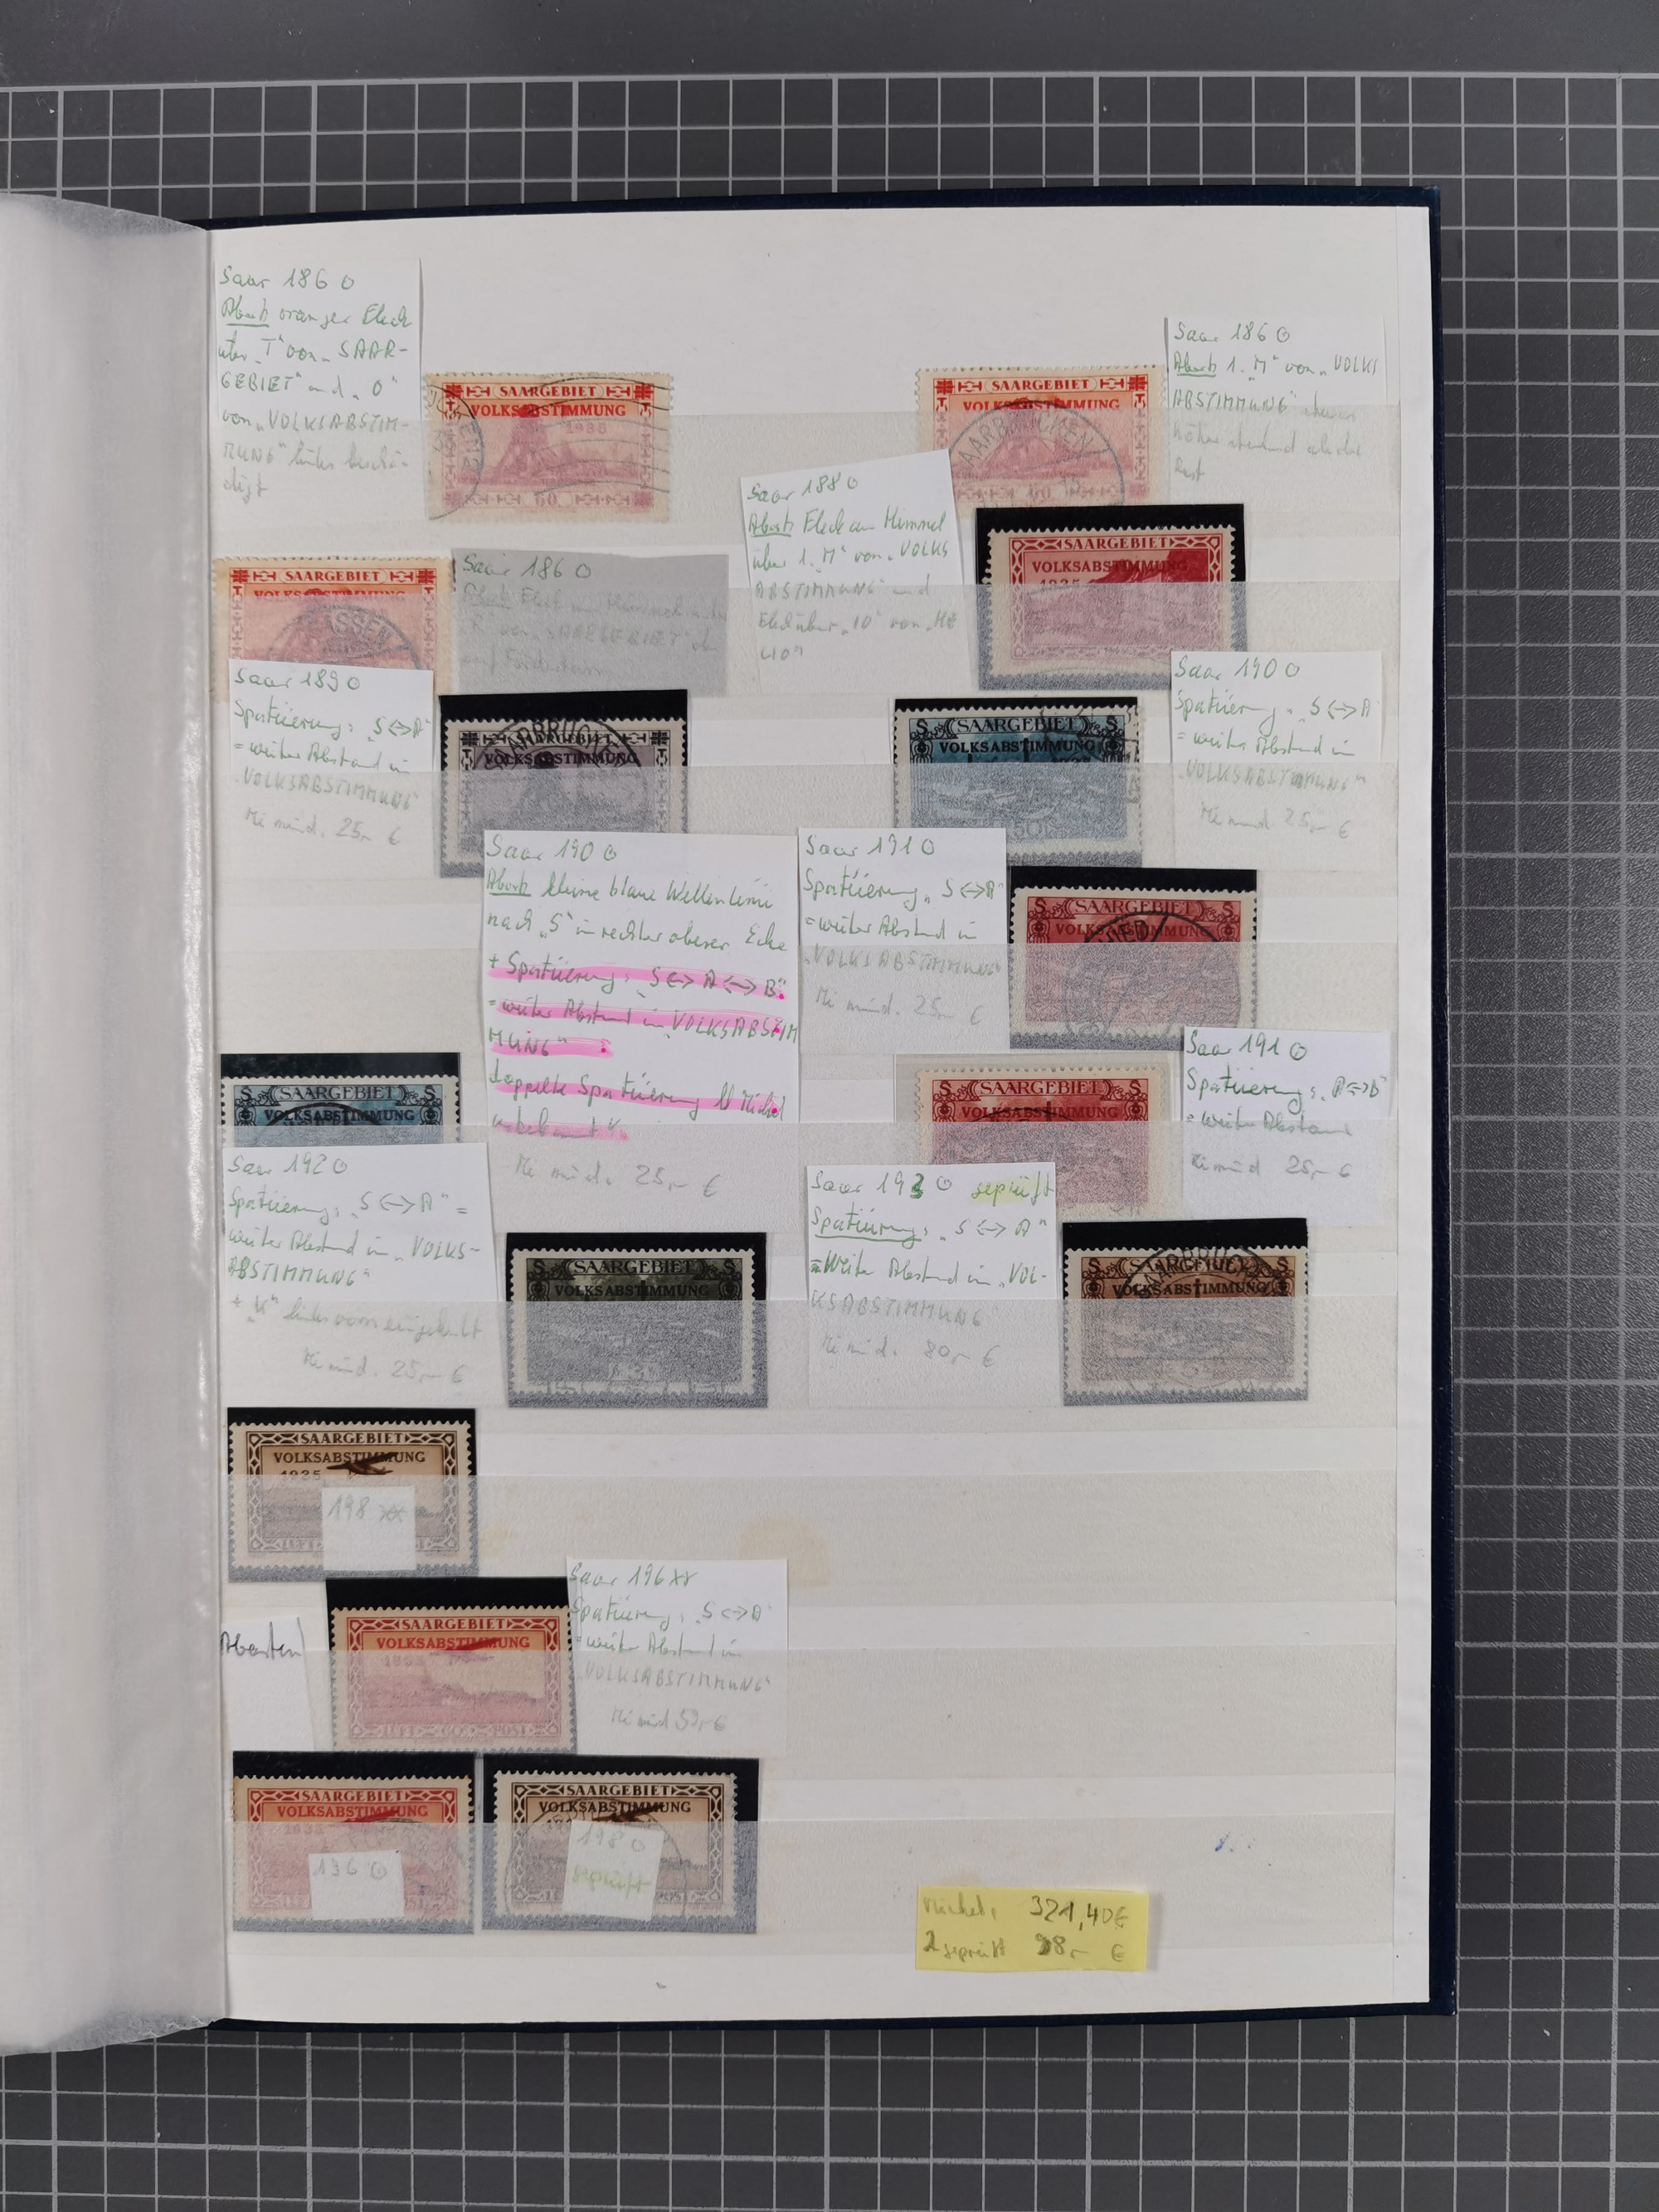 Saar 186 ⊙
Abart: oranger Fleck
unter „T" von „SAAR-
GEBIET" und „O"
von „VOLKSABSTIM-
MUNG" links beschä-
digt
SAARGEBIET
VOLKSABSTIMMUNG
1935
60
SAARGEBIET
VOLKSABSTIMMUNG
SAARBRÜCKEN
60
Saar 186 ⊙
Abart: 1. „M" von „VOLKS
ABSTIMMUNG" etwas
höher stehend als der
Rest
Saar 188 ⊙
Abart: Fleck am Himmel
über 1. „M" von „VOLKS
ABSTIMMUNG" und
Fleck über „10" von
SAARGEBIET
VOLKSABSTIMMUNG
1935
SAARGEBIET
VOLKSABSTIMMUNG
Saar 186 ⊙
Abart: Fleck am Himmel
„R" von „SAARGEBIET"
auf Förderturm
Saar 189 ⊙
Spatiierung: „S<->A"
= weiter Abstand in
„VOLKSABSTIMMUNG"
Mi mind. 25,- €
SAARGEBIET
VOLKSABSTIMMUNG
1935
SAARBRÜCKEN
SAARGEBIET
VOLKSABSTIMMUNG
1935
50
Saar 190 ⊙
Spatiierung: „S<->A"
= weiter Abstand in
„VOLKSABSTIMMUNG"
Mi mind 25,- €
Saar 190 ⊙
Abart: kleine blaue Wellenlinie
nach „S" in rechter oberer Ecke
+ Spatiierung: „S<-> A <-> B"
= weiter Abstand in „VOLKSABSTIM
MUNG"
doppelte Spatiierung lt Michel
unbekannt
Mi mind. 25,- €
Saar 191 ⊙
Spatiierung „S<->A"
= weiter Abstand in
„VOLKSABSTIMMUNG"
Mi mind. 25,- €
SAARGEBIET
VOLKSABSTIMMUNG
SAARGEBIET
VOLKSABSTIMMUNG
SAARGEBIET
VOLKSABSTIMMUNG
Saar 191 ⊙
Spatiierung: „A<->B"
= weiter Abstand
Mi mind 25,- €
Saar 192 ⊙
Spatiierung: „S<->A" =
weiter Abstand in „VOLKS-
ABSTIMMUNG"
+ „K" links vorn eingekerbt
Mi mind. 25,- €
SAARGEBIET
VOLKSABSTIMMUNG
Saar 193 ⊙ geprüft
Spatiierung: „S <-> A"
= Weiter Abstand in „VOL-
KSABSTIMMUNG"
Mi mind. 80,- €
SAARGEBIET
VOLKSABSTIMMUNG
SAARGEBIET
VOLKSABSTIMMUNG
1935
198 xx
Abarten
SAARGEBIET
VOLKSABSTIMMUNG
1935
LUFT 60 POST
Saar 196 xx
Spatiierung: „S<->A"
= weiter Abstand in
„VOLKSABSTIMMUNG"
Mi mind 50,- €
SAARGEBIET
VOLKSABSTIMMUNG
1935
196 ⊙
SAARGEBIET
VOLKSABSTIMMUNG
198 ⊙
geprüft
Michel: 321,40 €
2 geprüft 98,- €